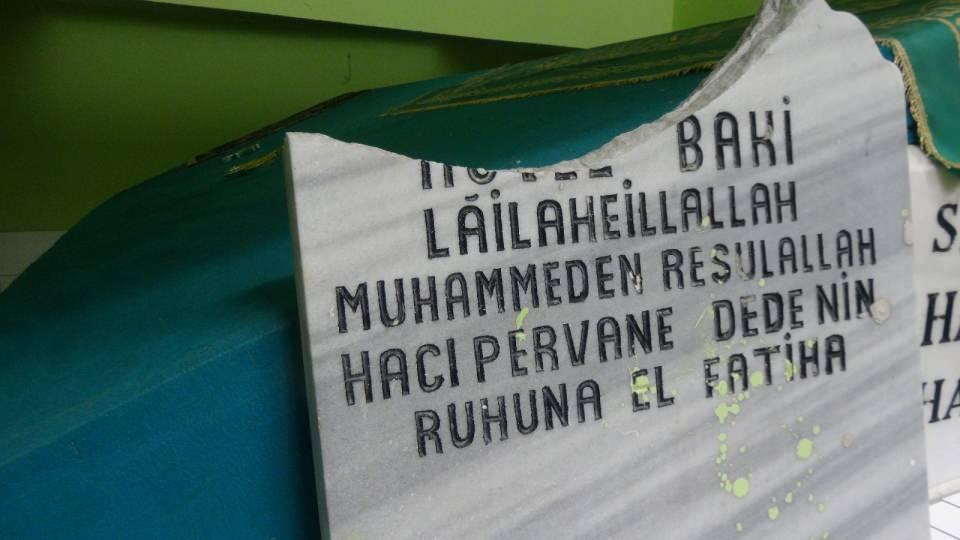 BAKİ
LÂİLAHEİLLALLAH
MUHAMMEDEN RESULALLAH
HACI PERVANE DEDE NİN
RUHUNA EL FATİHA